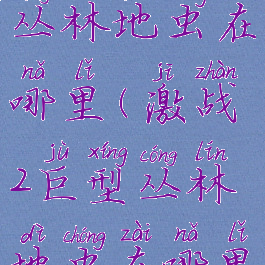 丛林地虫在
nǎ lǐ jī zhàn
哪里(激战
jù xíng cóng lín
2巨型丛林
dì chóng zài nǎ lǐ
地虫在哪里